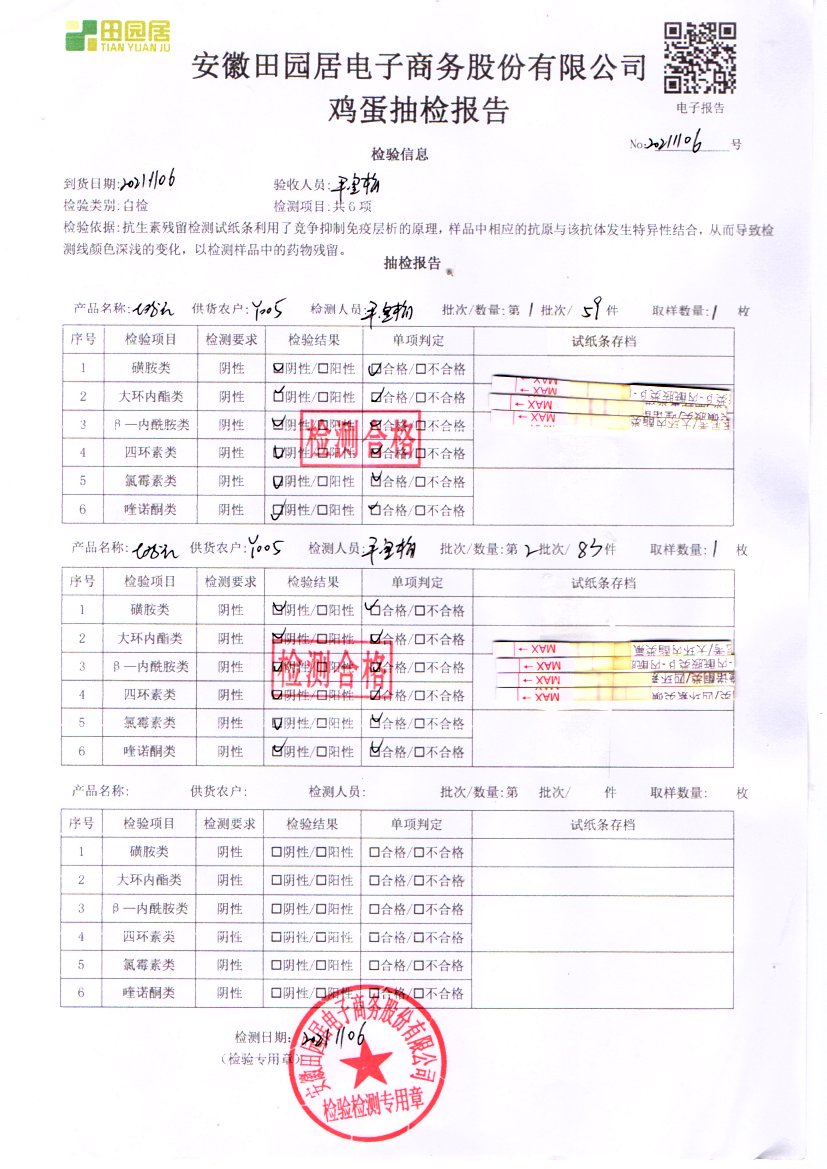 田园居
TIAN YUAN JU
安徽田园居电子商务股份有限公司
鸡蛋抽检报告
电子报告
检验信息
No:20211106 号
到货日期:20211106 验收人员:
检验类别:自检 检测项目:共6项
检验依据:抗生素残留检测试纸条利用了竞争抑制免疫层析的原理,样品中相应的抗原与该抗体发生特异性结合,从而导致检
测线颜色深浅的变化,以检测样品中的药物残留。
抽检报告
产品名称: 供货农户:Y005 检测人员: 批次/数量:第 1 批次/ 59 件 取样数量: 1 枚
序号 检验项目 检测要求 检验结果 单项判定 试纸条存档
1 磺胺类 阴性 ☑阴性/□阳性 ☑合格/□不合格
2 大环内酯类 阴性 ☑阴性/□阳性 ☑合格/□不合格
3 β—内酰胺类 阴性 ☑阴性/□阳性 ☑合格/□不合格
4 四环素类 阴性 ☑阴性/□阳性 ☑合格/□不合格
5 氯霉素类 阴性 ☑阴性/□阳性 ☑合格/□不合格
6 喹诺酮类 阴性 ☑阴性/□阳性 ☑合格/□不合格
检测合格
MAX
MAX
MAX
产品名称: 供货农户:Y005 检测人员: 批次/数量:第 2 批次/ 83 件 取样数量: 1 枚
序号 检验项目 检测要求 检验结果 单项判定 试纸条存档
1 磺胺类 阴性 ☑阴性/□阳性 ☑合格/□不合格
2 大环内酯类 阴性 ☑阴性/□阳性 ☑合格/□不合格
3 β—内酰胺类 阴性 ☑阴性/□阳性 ☑合格/□不合格
4 四环素类 阴性 ☑阴性/□阳性 ☑合格/□不合格
5 氯霉素类 阴性 ☑阴性/□阳性 ☑合格/□不合格
6 喹诺酮类 阴性 ☑阴性/□阳性 ☑合格/□不合格
检测合格
MAX
MAX
MAX
MAX
产品名称: 供货农户: 检测人员: 批次/数量:第 批次/ 件 取样数量: 枚
序号 检验项目 检测要求 检验结果 单项判定 试纸条存档
1 磺胺类 阴性 □阴性/□阳性 □合格/□不合格
2 大环内酯类 阴性 □阴性/□阳性 □合格/□不合格
3 β—内酰胺类 阴性 □阴性/□阳性 □合格/□不合格
4 四环素类 阴性 □阴性/□阳性 □合格/□不合格
5 氯霉素类 阴性 □阴性/□阳性 □合格/□不合格
6 喹诺酮类 阴性 □阴性/□阳性 □合格/□不合格
检测日期: 20211106
(检验专用章)
安徽田园居电子商务股份有限公司
检验检测专用章